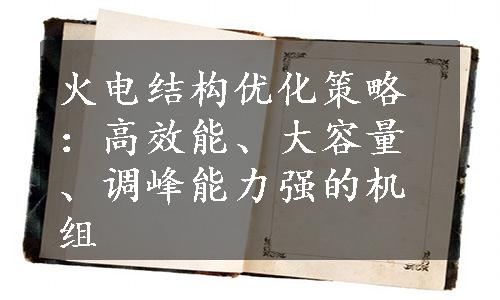 火电结构优化策略
：高效能、大容量
、调峰能力强的机
组